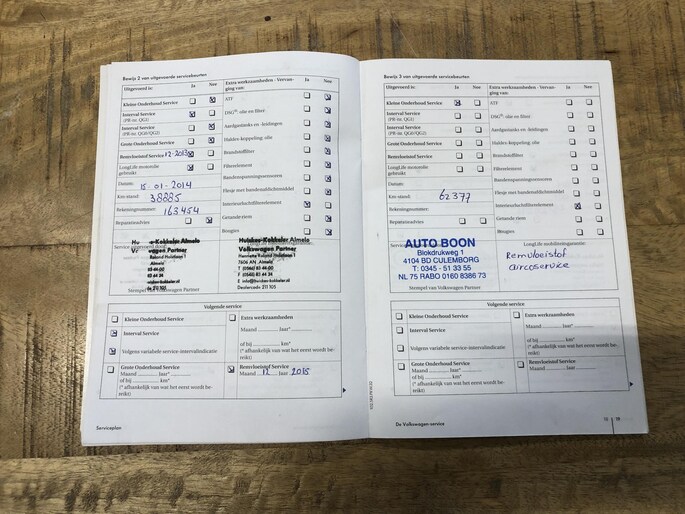 Bewijs 2 van uitgevoerde servicebeurten
Uitgevoerd is: Ja Nee
Kleine Onderhoud Service
Interval Service
(PR-nr. QG1)
Interval Service
(PR-nr. QG0/QG2)
Grote Onderhoud Service
Remvloeistof Service 12-2013
LongLife motorolie
gebruikt
Datum:
15-01-2014
Km-stand: 38885
Rekeningnummer: 163454
Reparatieadvies
Extra werkzaamheden - Vervan-
ging van: Ja Nee
ATF
DSG®-olie en filter
Aardgastanks en -leidingen
Haldex-koppeling: olie
Brandstoffilter
Filterelement
Bandenspanningssensoren
Flesje met bandenafdichtmiddel
Interieur/luchtfilterelement
Getande riem
Bougies
Volkswagen Partner
Roland Holstlaan 1
Almelo
Huiskes-Kokkeler Almelo
Volkswagen Partner
Henriette Roland Holstlaan 1
7606 AN Almelo
T (0546) 83 44 00
F (0546) 83 44 34
Dealercode 211 105
Stempel van Volkswagen Partner
Volgende service
Kleine Onderhoud Service
Interval Service
Volgens variabele service-intervalindicatie
Grote Onderhoud Service
Maand Jaar*
of bij km*
(* afhankelijk van wat het eerst wordt be-
reikt)
Extra werkzaamheden
Maand Jaar*
of bij km*
(* afhankelijk van wat het eerst wordt be-
reikt)
Remvloeistof Service
Maand 12 Jaar 2015
Serviceplan
Bewijs 3 van uitgevoerde servicebeurten
Uitgevoerd is: Ja Nee
Kleine Onderhoud Service
Interval Service
(PR-nr. QG1)
Interval Service
(PR-nr. QG0/QG2)
Grote Onderhoud Service
Remvloeistof Service
LongLife motorolie
gebruikt
Datum:
Km-stand: 62377
Rekeningnummer:
Reparatieadvies
Extra werkzaamheden - Vervan-
ging van: Ja Nee
ATF
DSG®-olie en filter
Aardgastanks en -leidingen
Haldex-koppeling: olie
Brandstoffilter
Filterelement
Bandenspanningssensoren
Flesje met bandenafdichtmiddel
Interieur/luchtfilterelement
Getande riem
Bougies
AUTO BOON
Blokdrukweg 1
4104 BD CULEMBORG
T: 0345 - 51 33 55
NL 75 RABO 0160 8386 73
Stempel van Volkswagen Partner
LongLife mobiliteitsgarantie
Remvloeistof
aircoservice
Volgende service
Kleine Onderhoud Service
Interval Service
Volgens variabele service-intervalindicatie
Grote Onderhoud Service
Maand Jaar*
of bij km*
(* afhankelijk van wat het eerst wordt be-
reikt)
Extra werkzaamheden
Maand Jaar*
of bij km*
(* afhankelijk van wat het eerst wordt be-
reikt)
Remvloeistof Service
Maand Jaar
De Volkswagen-service